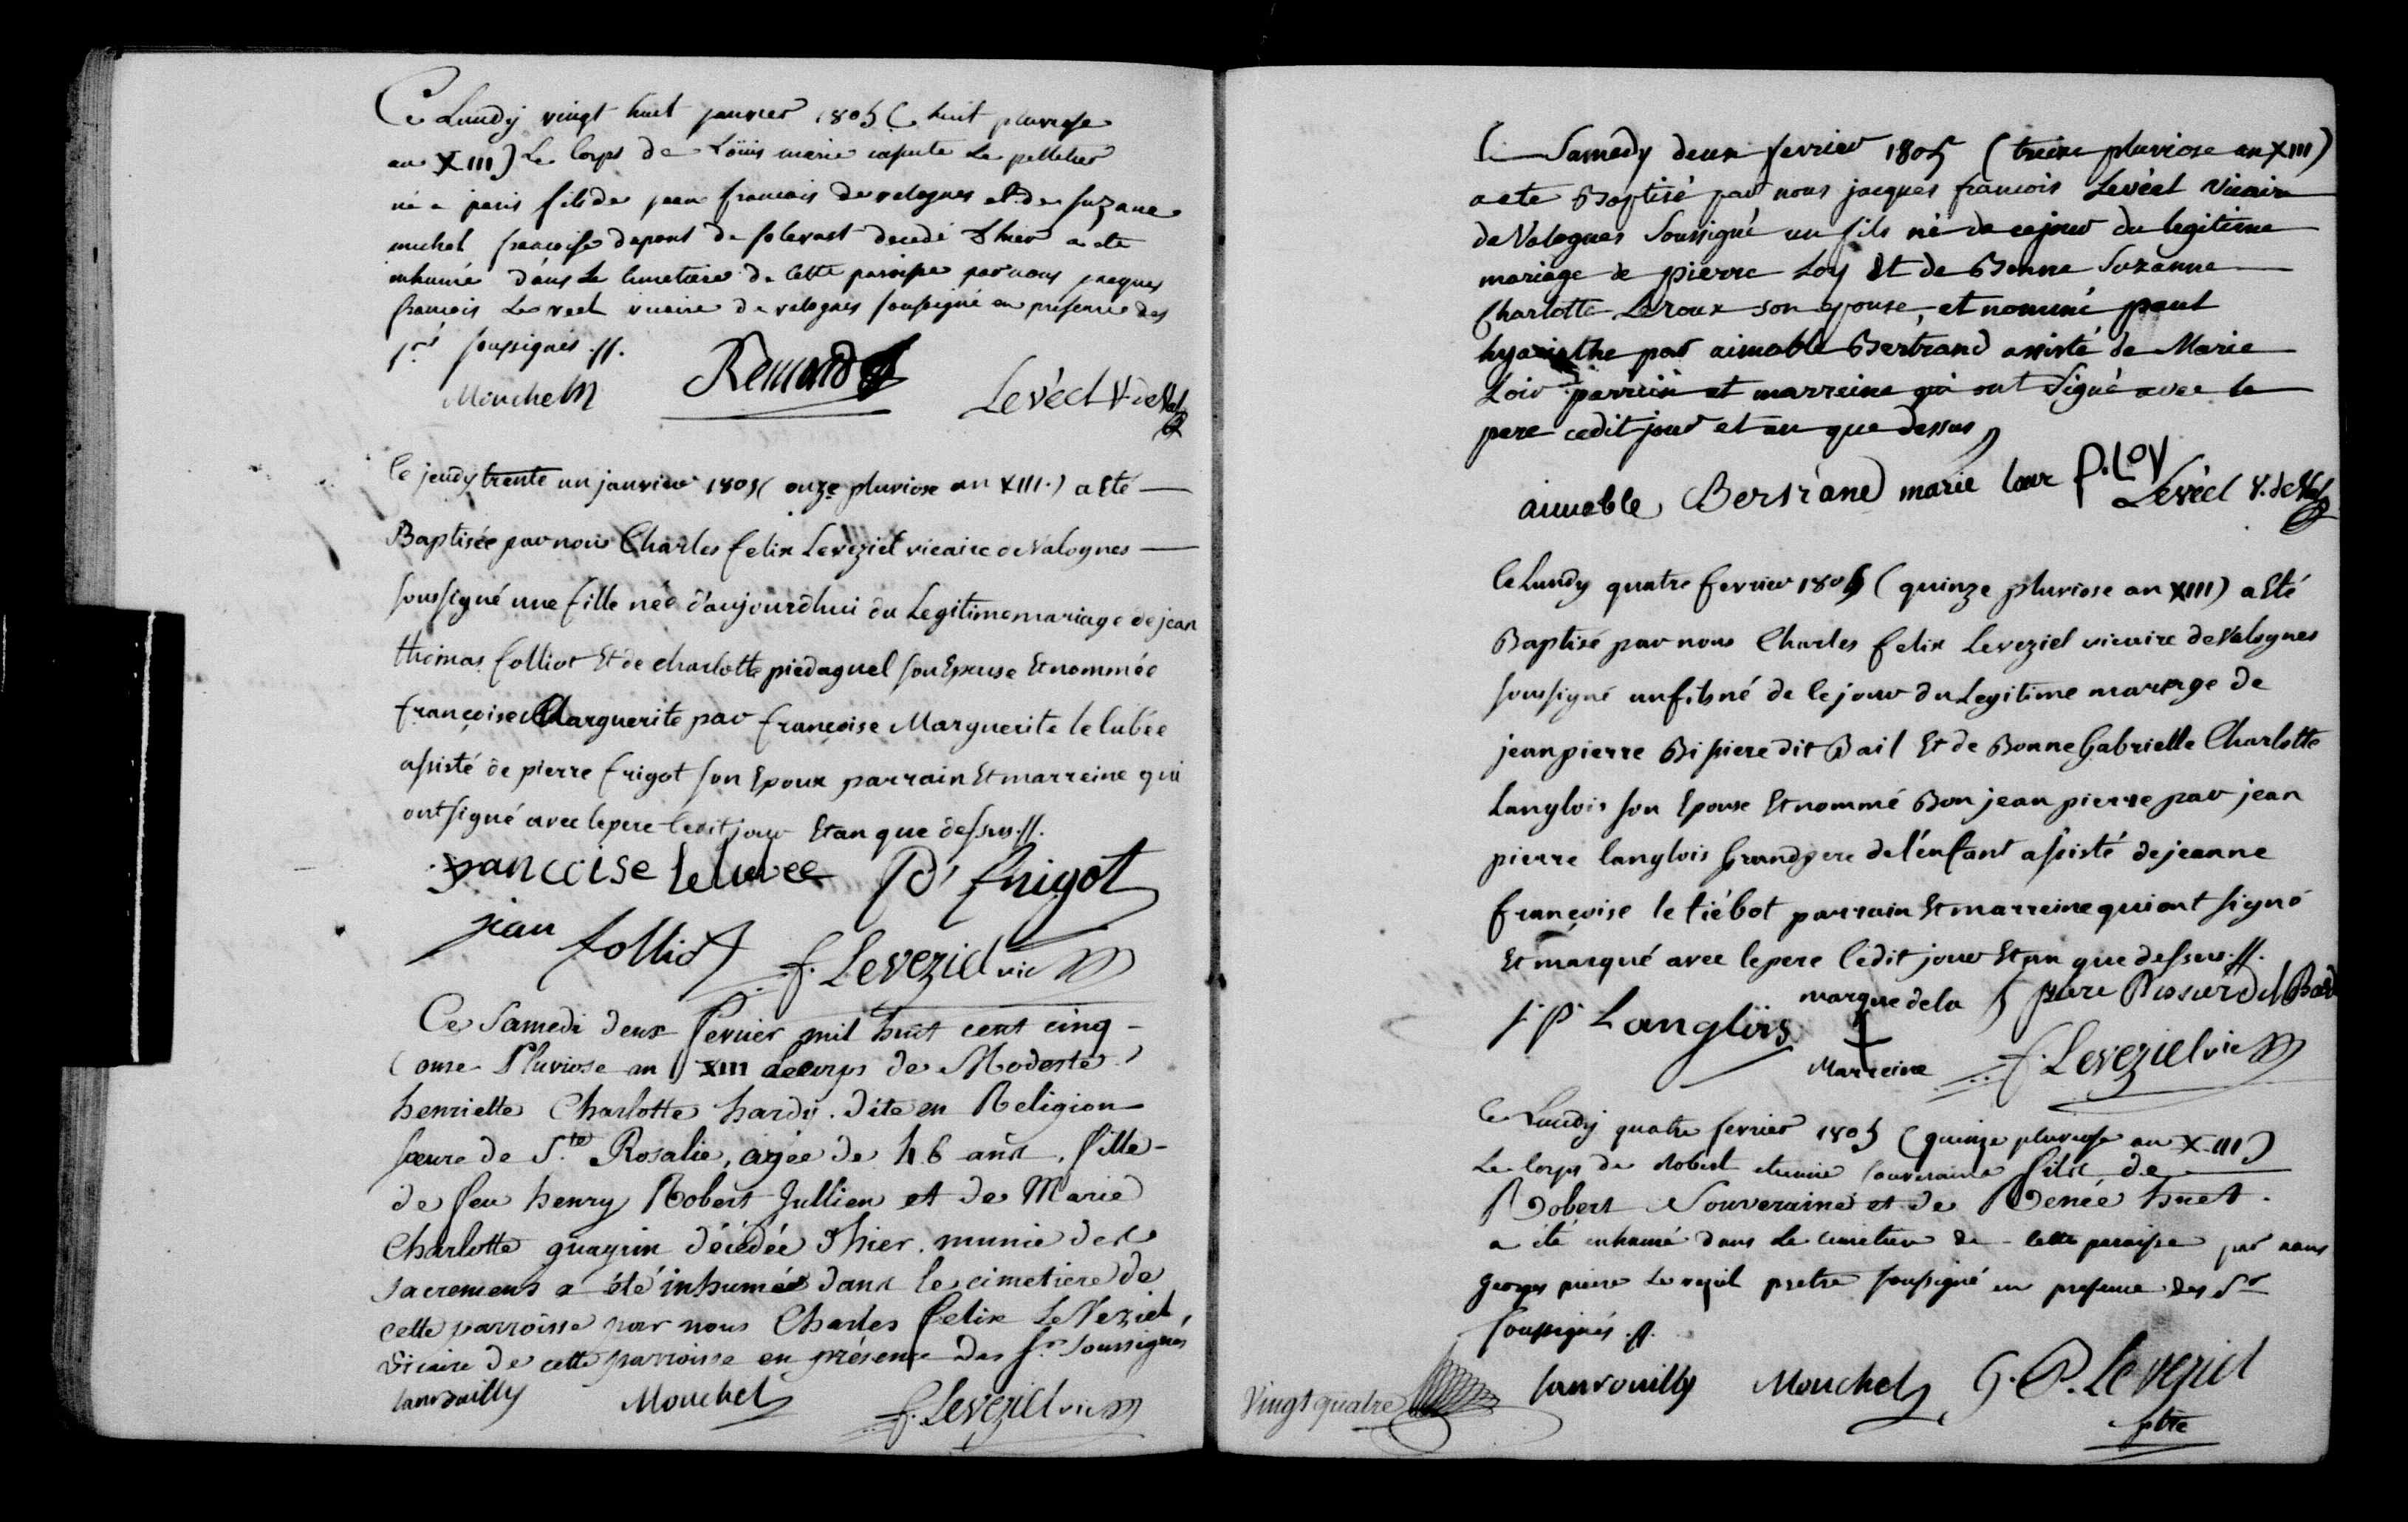 Ce Lundy vingt huit janvier 1805 ( huit pluviose
an XIII) Le Corps de Loüis marie Le pelletier
né a paris fils de jean francois de valognes et de suzane
michel francoise dupont de sotevast decedé d'hier a ete
inhumé dans Le Cimetiere de Cette paroisse par nous jacques
francois Leveel vicaire de valognes soussigné en presence des
srs soussignés .//.
Mouchel Renard Levéel V. de Val
Ce jeudy trente un janvier 1805 ( onze pluviose an XIII.) a Eté
Baptisée par nous Charles felix Leveziel vicaire de Valognes
soussigné une fille née d'aujourdhui du Legitime mariage de jean
thomas folliot Et de charlotte piedagnel son Epouse Et nommée
françoise Marguerite par françoise Marguerite le lubée
assisté de pierre frigot son Epoux parrain Et marreine qui
ont signé avec le pere ledit jour Et an que dessus .//.
francoise le lubee P. frigot
jean folliot f. Leveziel vic
Ce Samedi deux fevrier mil huit cent cinq
(onse Pluviose an XIII Le corps de Modeste
henriette Charlotte hardy. dite en Religion
soeure de Ste Rosalie, agée de 46 ans, fille
de feu henry Robert Jullien et de Marie
Charlotte décédée d'hier. munie des
sacremens a été inhumée dans le cimetiere de
cette parroisse par nous Charles felix Le Veziel,
vicaire de cette parroisse en présence des srs soussignés
Sanrouilly Mouchel f. Leveziel vic
Ce Samedy deux fevrier 1805 (treize pluviose an XIII)
a ete Baptisé par nous jacques francois Levéel Vicaire
de Valognes Soussigné un fils né de ce jour du legitime
mariage de pierre Loy Et de Bonne Suzanne
Charlotte Leroux son epouse, et nommé paul
hyacinthe par aimable Bertrand assisté de Marie
Loir parrein et marreine qui ont Signé avec le
pere cedit jour et an que dessus
aimable Bertrand marie loir P. Loy Levéel V. de Val
Ce Lundy quatre fevrier 1805 ( quinze pluviose an XIII) a Eté
Baptisé par nous Charles felix Leveziel vicaire de Valognes
soussigné un fils né de ce jour du Legitime mariage de
jean pierre Bisiere dit Bail Et de Bonne Gabrielle Charlotte
Langlois son Epouse Et nommé Bon jean pierre par jean
pierre langlois Grand pere de l'enfant assisté de jeanne
françoise le tiébot parrain Et marreine qui ont signé
Et marqué avec le pere ledit jour Et an que dessus .//.
j. p. Langlois marque de la marreine f. Leveziel vic
Ce Lundy quatre fevrier 1805 (quinze pluviose an XIII)
Le Corps de Robert etienne Souveraine fils de
Robert Souveraine et de Renée huet.
a été inhumé dans Le Cimetiere de Cette paroisse par nous
Georges pierre Leveziel pretre soussigné en presence des Srs
soussignés .//.
Vingt quatre Sanrouilly Mouchel G. P. Leveziel
ptre